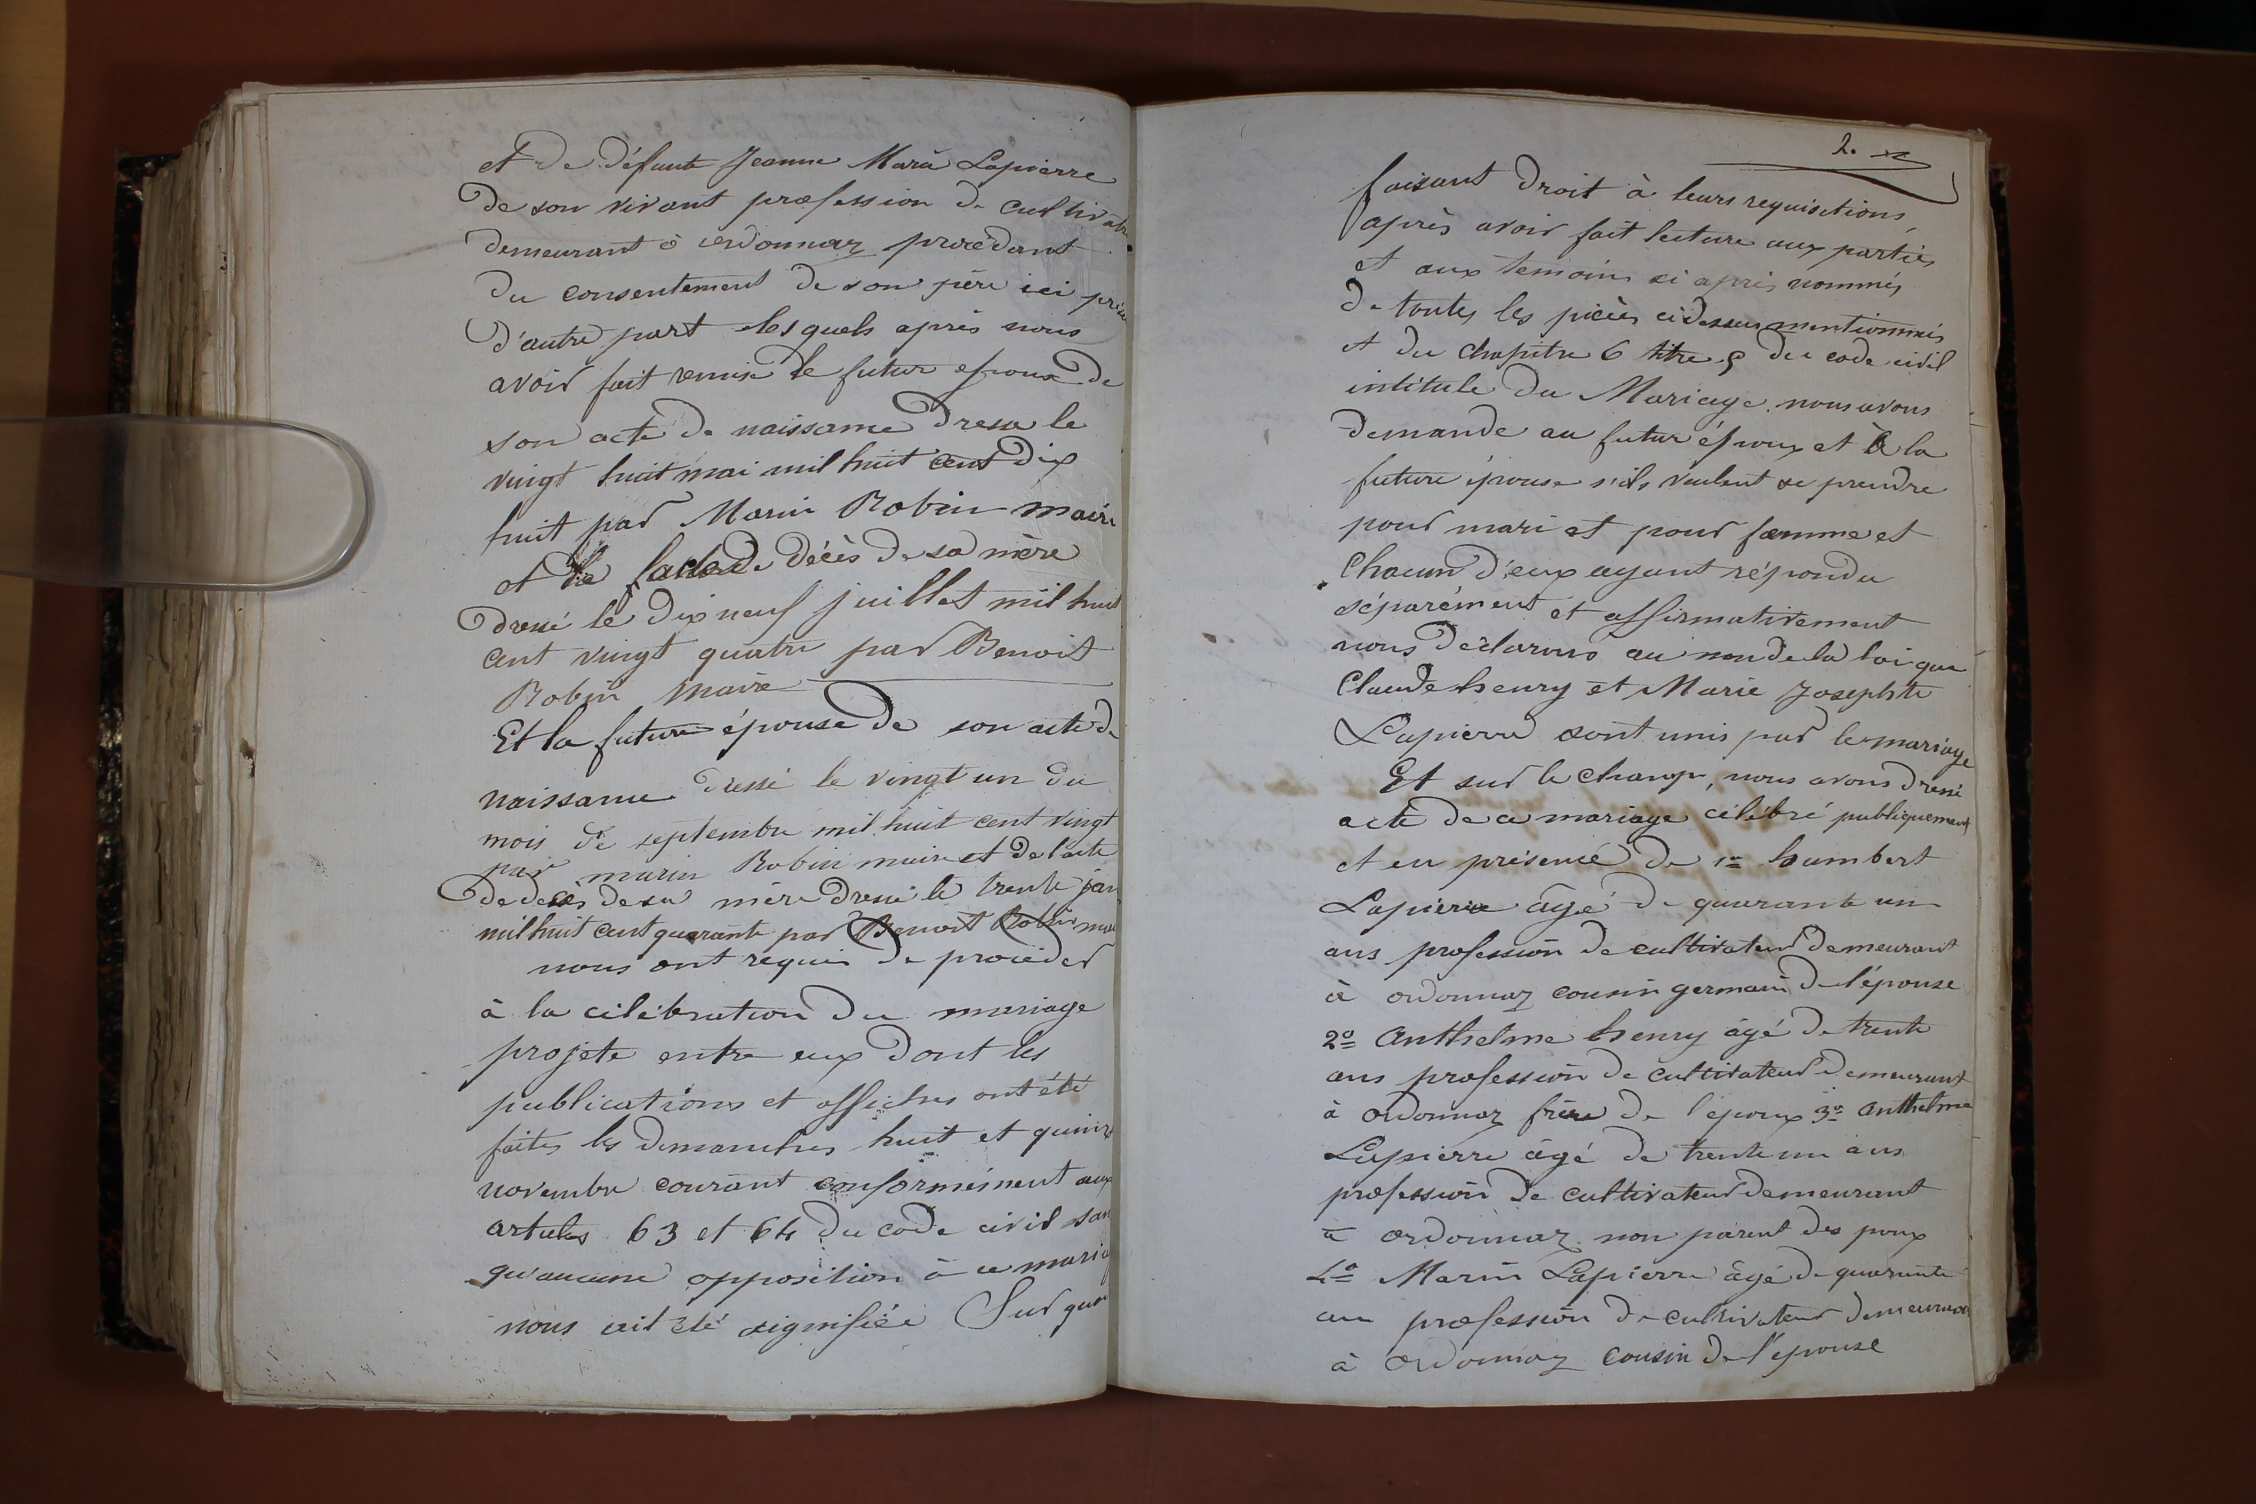 et de défunte Jeanne Maria Lapierre
de son vivant profession de cultivatr
demeurant à ordonnaz procédant
du consentement de son père ici prés
d'autre part lesquels après nous
avoir fait remise le futur epoux de
son acte de naissance dressé le
vingt huit mai mil huit cent dix
huit par Marin Robin maire
et de l'acte de décès de sa mère
dressé le dix neuf juillet mil huit
cent vingt quatre par Benoit
Robin maire
Et la future épouse de son acte de
naissance dressé le vingt un du
mois de septembre mil huit cent vingt
par marin Robin maire et de l'acte
de decès de sa mère dressé le trente jan
mil huit cent quarante par Benoit Robin mai
nous ont requis de procéder
à la célébration du mariage
projeté entre eux dont les
publications et affiches ont été
faites les dimanches huit et quinze
novembre courant conformément aux
articles 63 et 64 du code civil san
qu'aucune opposition à ce maria
nous ait été signifiée Sur quoi
2.
faisant droit à leurs requisitions,
après avoir fait lecture aux parties
et aux temoins ci après nommés
de toutes les pièces cidessus mentionnées
et du chapitre 6 titre 5 du code civil
intitule du Mariage. nous avons
demande au futur époux et à la
future épouse s'ils veulent se prendre
pour mari et pour femme et
Chacun d'eux ayant répondu
séparément et affirmativement
nous déclarons au nom de la loi que
Claude henry et Marie Josephte
Lapierre sont unis par le mariage
Et sur le champ, nous avons dressé
acte de ce mariage célébré publiquement
et en présence de 1º humbert
Lapierre âgé de quarante un
ans profession de cultivateur demeurant
à ordonnaz cousin germain de l'épouse
2º Anthelme henry âgé de trente
ans profession de cultivateur demeurant
à ordonnaz frère de l'epoux 3º anthelme
Lapierre âgé de trente un ans
profession de cultivateur demeurant
à ordonnaz non parent des poux
4º Marin Lapierre âgé de quarante
ans profession de cultivateur demeurant
à ordonnaz cousin de l'epouse